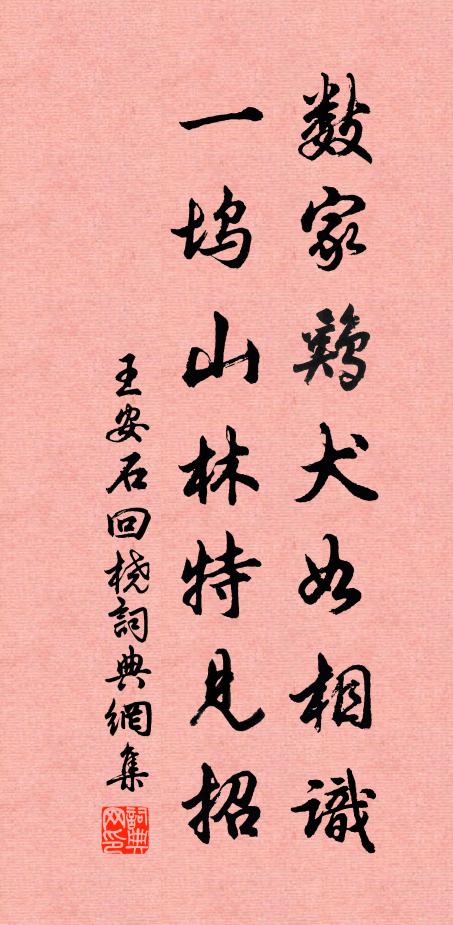 数家鷄犬如相識
一坞山林特見招
王安石回桡詞典網集
詞典网印